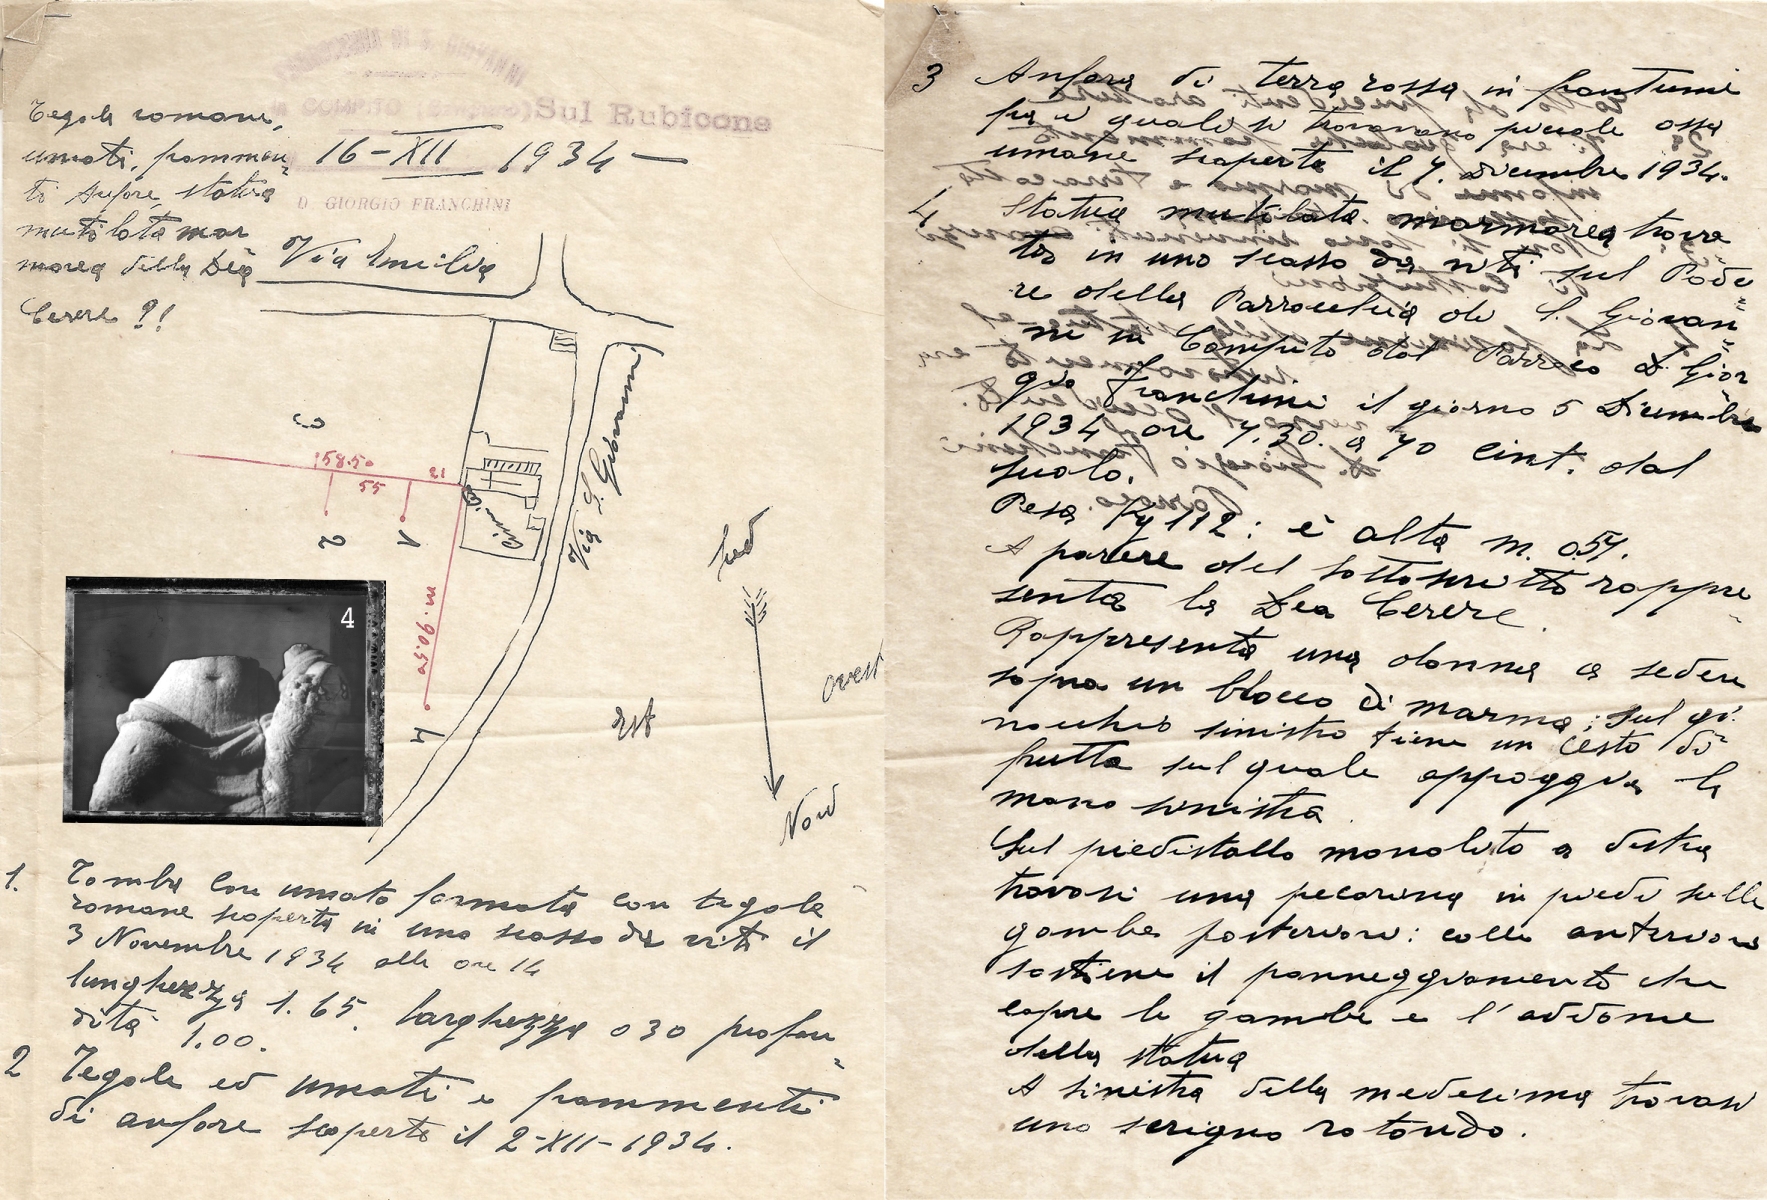 PARROCCHIA DI S. GIOVANNI
in COMPITO Sul Rubicone
16-XII 1934-
D. GIORGIO FRANCHINI
Tegole romane,
umati, frammen-
ti Anfore, statua
mutilata mar
morea della Dea
Cerere ?!
Via Emilia
Via S. Giovanni
3
158.50
55
21
2
1
m. 90.50
4
4
Sud
ovest
Est
Nord
1. Tomba con umato formata con tegole
romane scoperta in uno scasso da viti il
3 Novembre 1934 alle ore 14
lunghezza 1.65. larghezza 030 profon=
dità 1.00.
2 Tegole ed umati e frammenti
di anfore scoperte il 2-XII-1934.
3 Anfora di terra rossa in frantumi
fra i quali si trovavano piccole ossa
umane scoperta il 7. dicembre 1934.
4 Statua mutilata marmorea trova
ta in uno scasso da viti sul Pode
re della Parrocchia di S. Giovan=
ni in Compito dal Parroco D. Gior
gio Franchini il giorno 5 Dicembre
1934 ore 7.30. a 70 cent. dal
suolo.
Pesa Kg 112: è alta m. 0.57.
A parere del sottoscritto rappre=
senta la Dea Cerere.
Rappresenta una donna a sedere
sopra un blocco di marmo; sul gi=
nocchio sinistro tiene un cesto di
frutta sul quale appoggia la
mano sinistra.
Sul piedistallo monolito a destra
trovasi una pecorina in piedi sulle
gambe posteriori: colle anteriori
sostiene il panneggiamento che
copre le gambe e l'addome
della statua
A sinistra della medesima trovasi
uno scrigno rotondo.